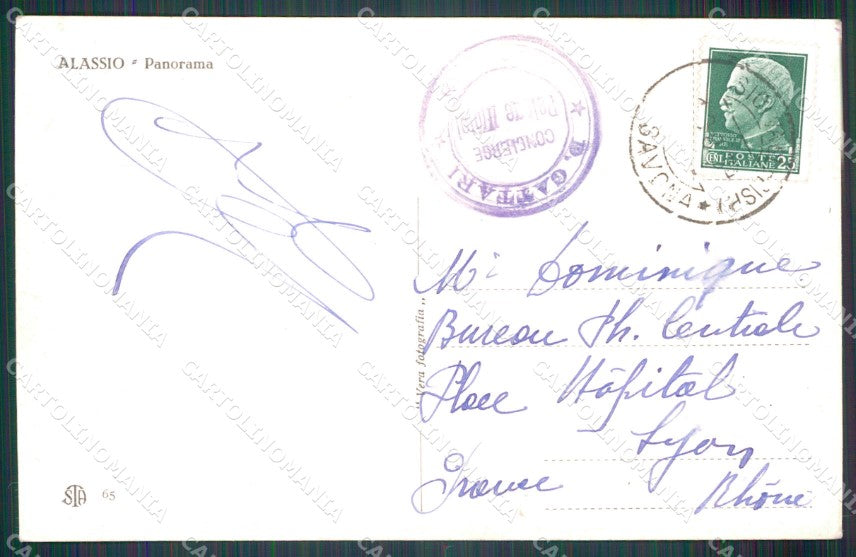 ALASSIO - Panorama
★ P. GATTARI ★
CONCIERGE
SAVONA ★
POSTE ITALIANE
CENT 25
Mr Dominique
Bureau Ph. Centrale
Place Hôpital
Lyon
France Rhône
"Vera fotografia"
STA 65
CARTOLINOMANIA